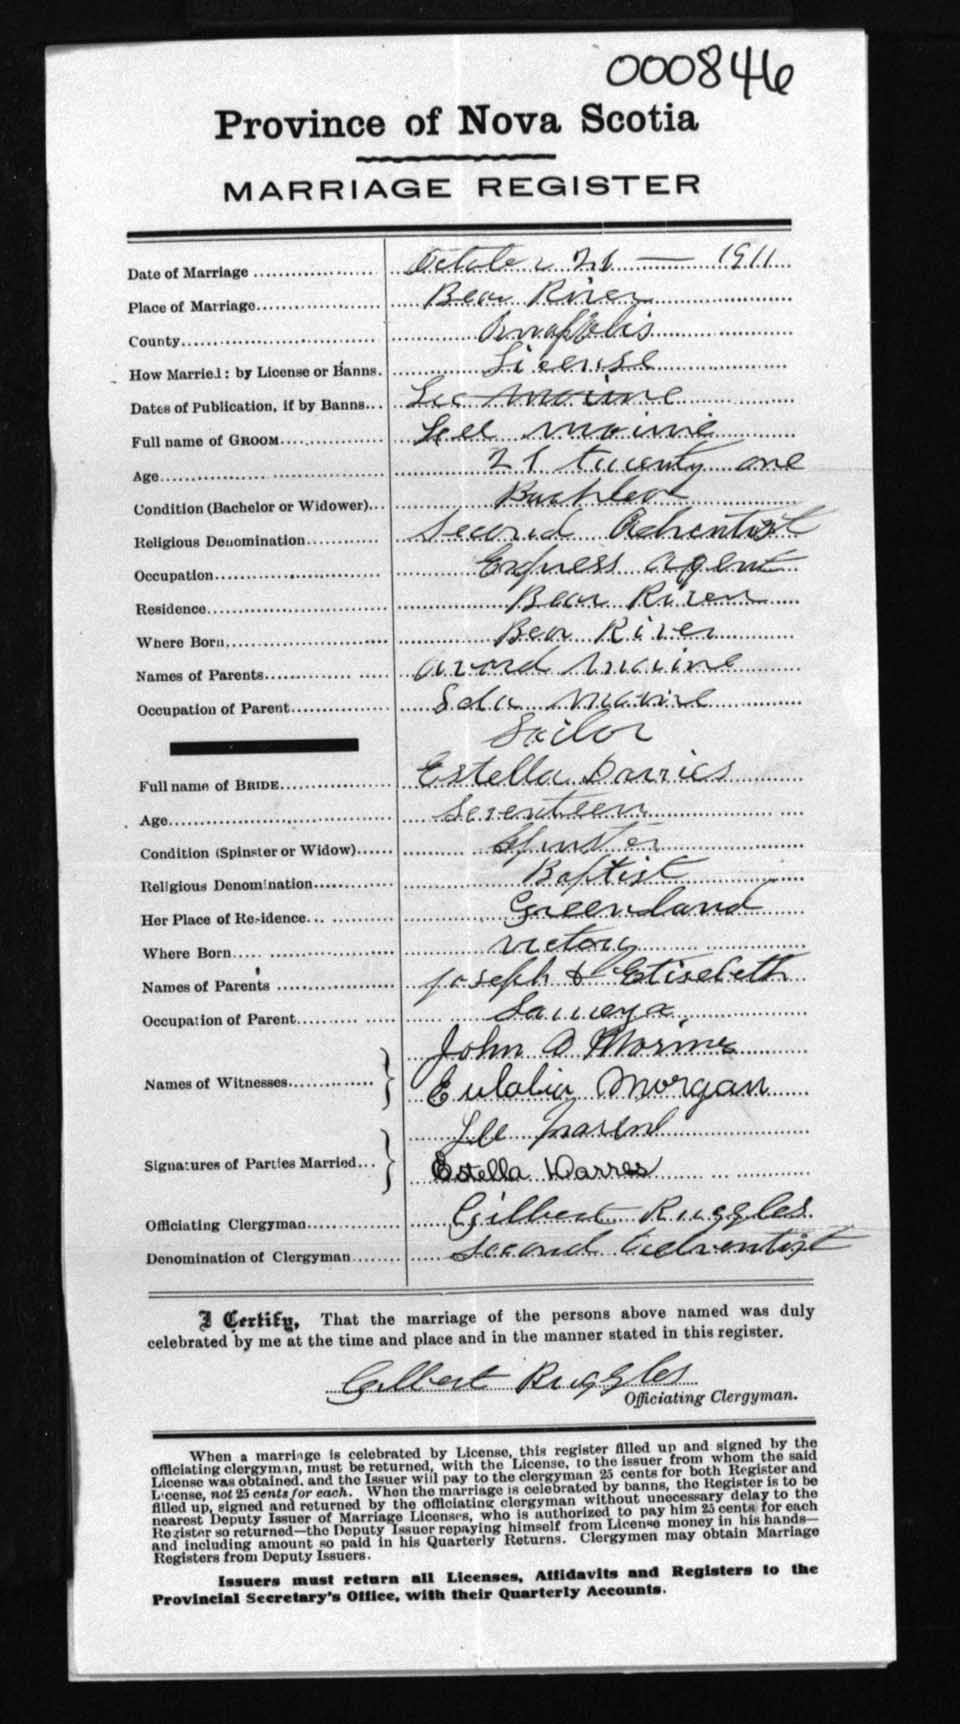 000846
Province of Nova Scotia
MARRIAGE REGISTER
Date of Marriage October 21 — 1911
Place of Marriage Bear River
County Annapolis
How Married: by License or Banns. License
Dates of Publication, if by Banns Lee Maine
Full name of GROOM Lee Maine
Age 21 twenty one
Condition (Bachelor or Widower) Bachleor
Religious Denomination Second Adventist
Occupation Express agent
Residence Bear River
Where Born Bear River
Names of Parents avard Maine
Occupation of Parent Maine
Sailor
Full name of BRIDE Estella Darries
Age Seventeen
Condition (Spinster or Widow) Spinster
Religious Denomination Baptist
Her Place of Residence Greenland
Where Born Victory
Names of Parents Joseph & Elisebeth
Occupation of Parent
John
Names of Witnesses Eulalia Morgan
Lee
Signatures of Parties Married Estella Darres
Officiating Clergyman Gilbert Ruggles
Denomination of Clergyman Second Adventist
I Certify, That the marriage of the persons above named was duly
celebrated by me at the time and place and in the manner stated in this register.
Gilbert Ruggles
Officiating Clergyman.
When a marriage is celebrated by License, this register filled up and signed by the
officiating clergyman, must be returned, with the License, to the issuer from whom the said
License was obtained, and the Issuer will pay to the clergyman 25 cents for both Register and
License, not 25 cents for each. When the marriage is celebrated by banns, the Register is to be
filled up, signed and returned by the officiating clergyman without unecessary delay to the
nearest Deputy Issuer of Marriage Licenses, who is authorized to pay him 25 cents for each
Register so returned—the Deputy Issuer repaying himself from License money in his hands—
and including amount so paid in his Quarterly Returns. Clergymen may obtain Marriage
Registers from Deputy Issuers.
Issuers must return all Licenses, Affidavits and Registers to the
Provincial Secretary's Office, with their Quarterly Accounts.